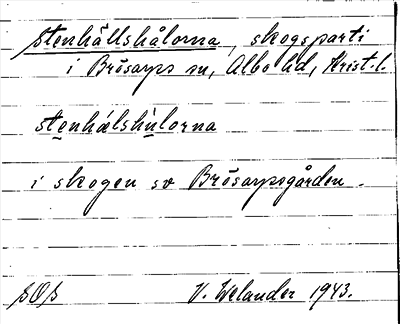 stenhällshålorna, skogsparti
i Brösarps sn, Albo hd, Krist.l.
stenhælshùlorna
i skogen sv Brösarpsgården.
SOS V. Welander 1943.